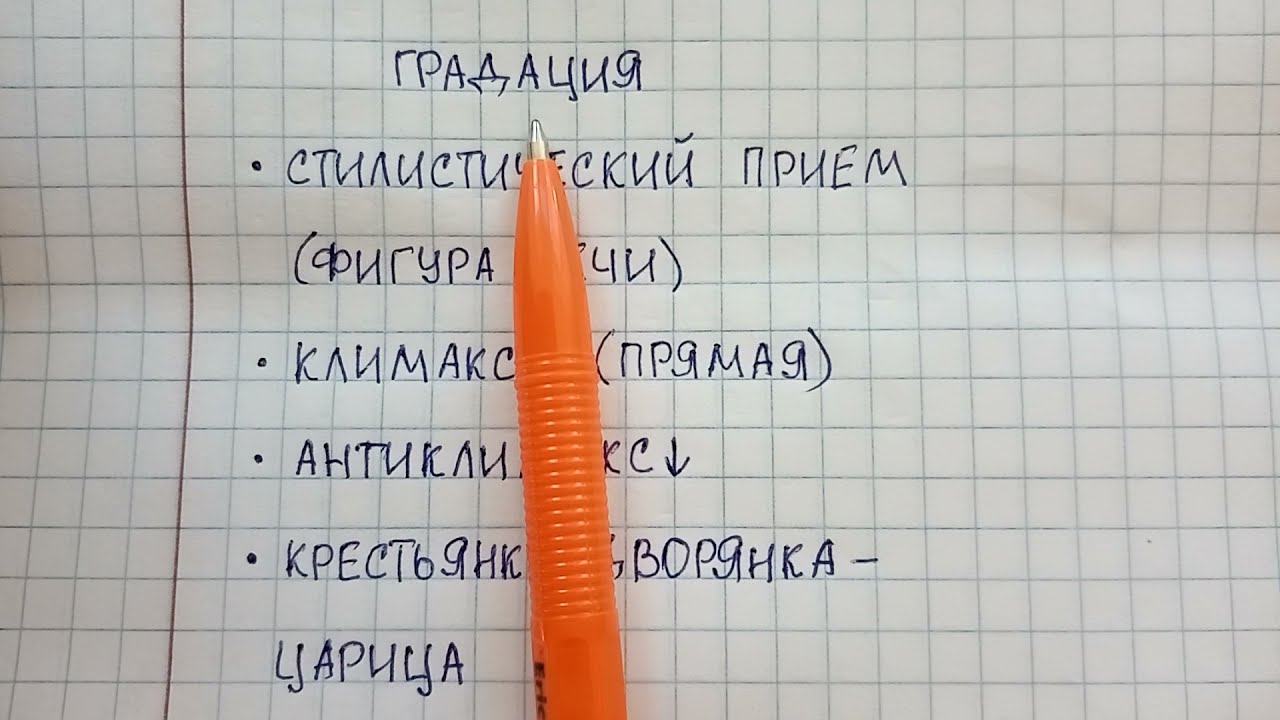 ГРАДАЦИЯ
• СТИЛИСТИЧЕСКИЙ ПРИЕМ
(ФИГУРА РЕЧИ)
• КЛИМАКС (ПРЯМАЯ)
• АНТИКЛИМАКС↓
• КРЕСТЬЯНКА ДВОРЯНКА –
ЦАРИЦА